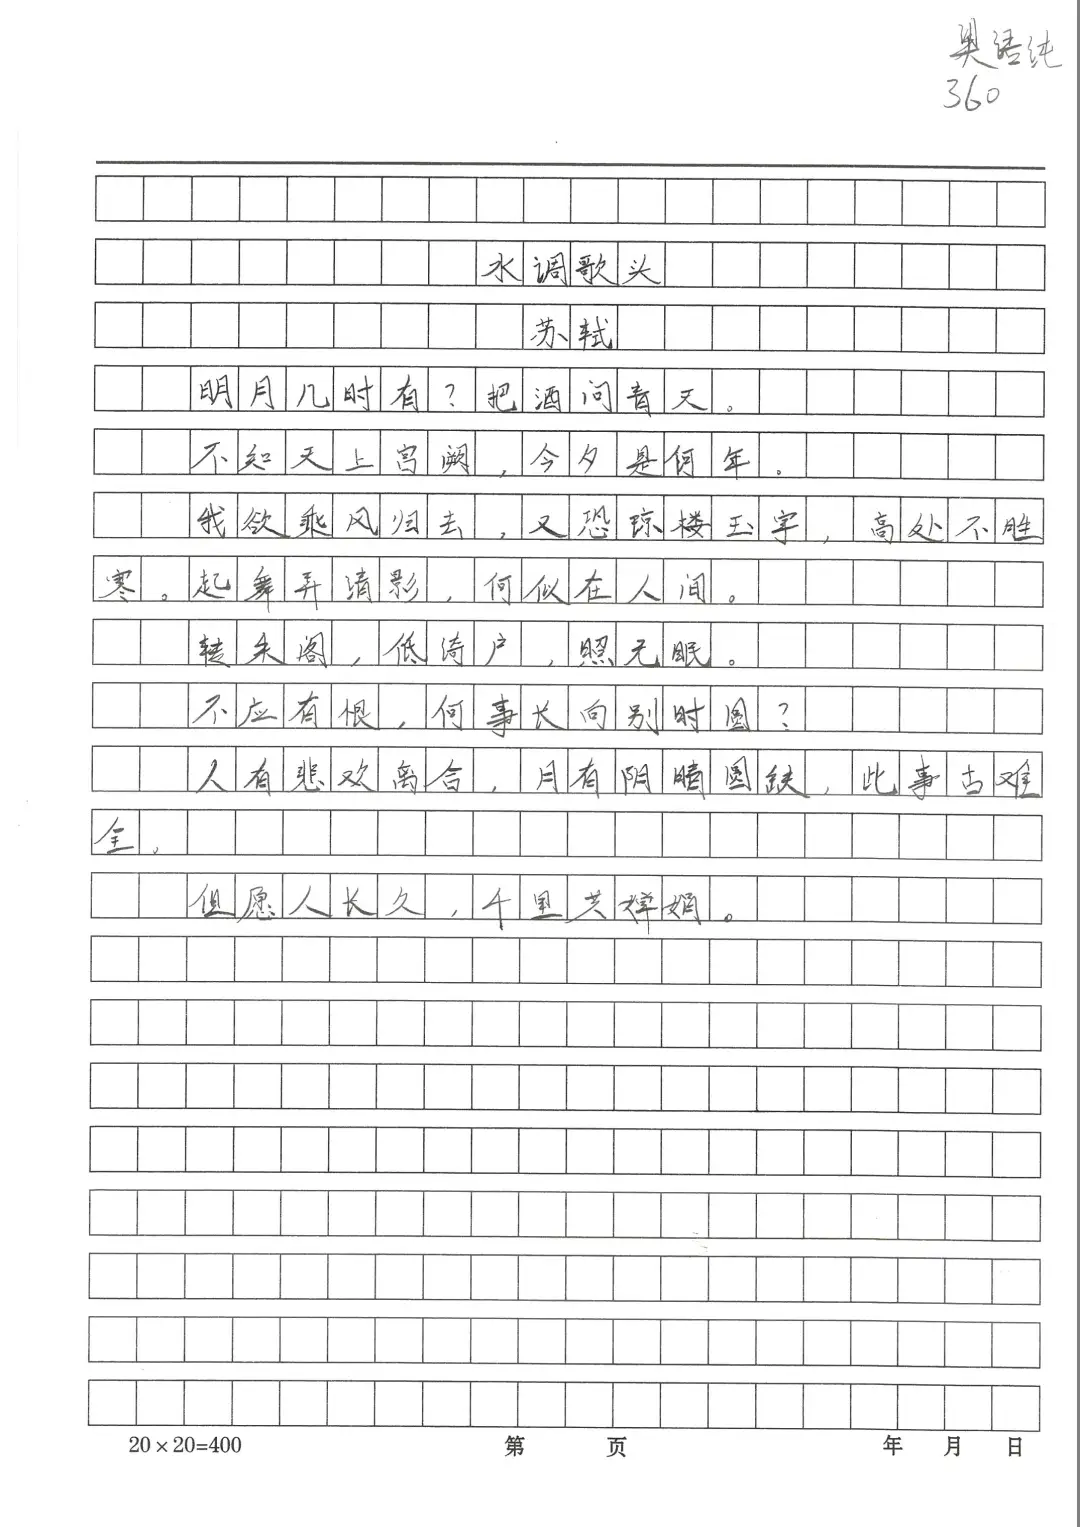 吴语纯
360
水调歌头
苏轼
明月几时有？把酒问青天。
不知天上宫阙，今夕是何年。
我欲乘风归去，又恐琼楼玉宇，高处不胜
寒。起舞弄清影，何似在人间。
转朱阁，低绮户，照无眠。
不应有恨，何事长向别时圆？
人有悲欢离合，月有阴晴圆缺，此事古难
全。
但愿人长久，千里共婵娟。
20×20=400 第 页 年 月 日